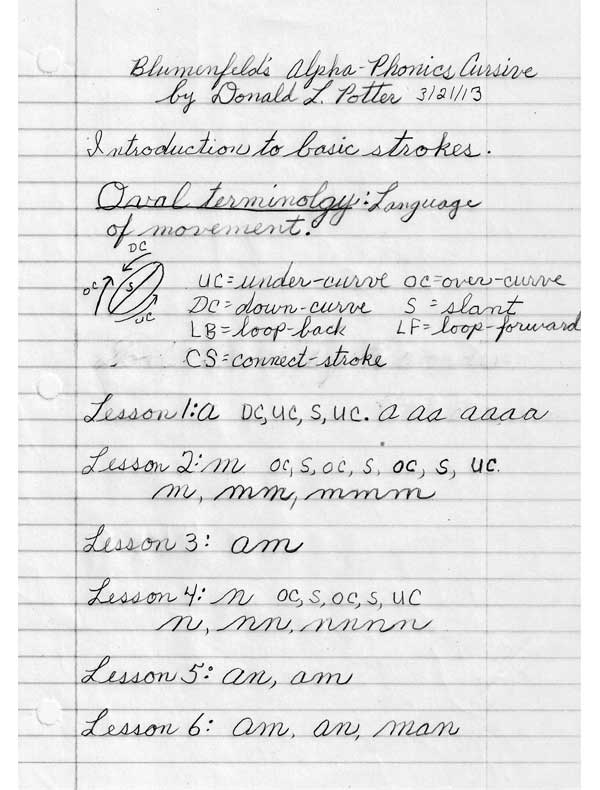 Blumenfeld's Alpha-Phonics Cursive
by Donald L. Potter 3/21/13
Introduction to basic strokes.
Oval terminolgy: Language
of movement.
DC
OC S UC
UC=under-curve OC=over-curve
DC=down-curve S=slant
LB=loop-back LF=loop-forward
CS=connect-stroke
Lesson 1: a DC, UC, S, UC. a aa aaaa
Lesson 2: m OC, S, OC, S, OC, S, UC.
m, mm, mmm
Lesson 3: am
Lesson 4: n OC, S, OC, S, UC
n, nn, nnnn
Lesson 5: an, am
Lesson 6: am, an, man